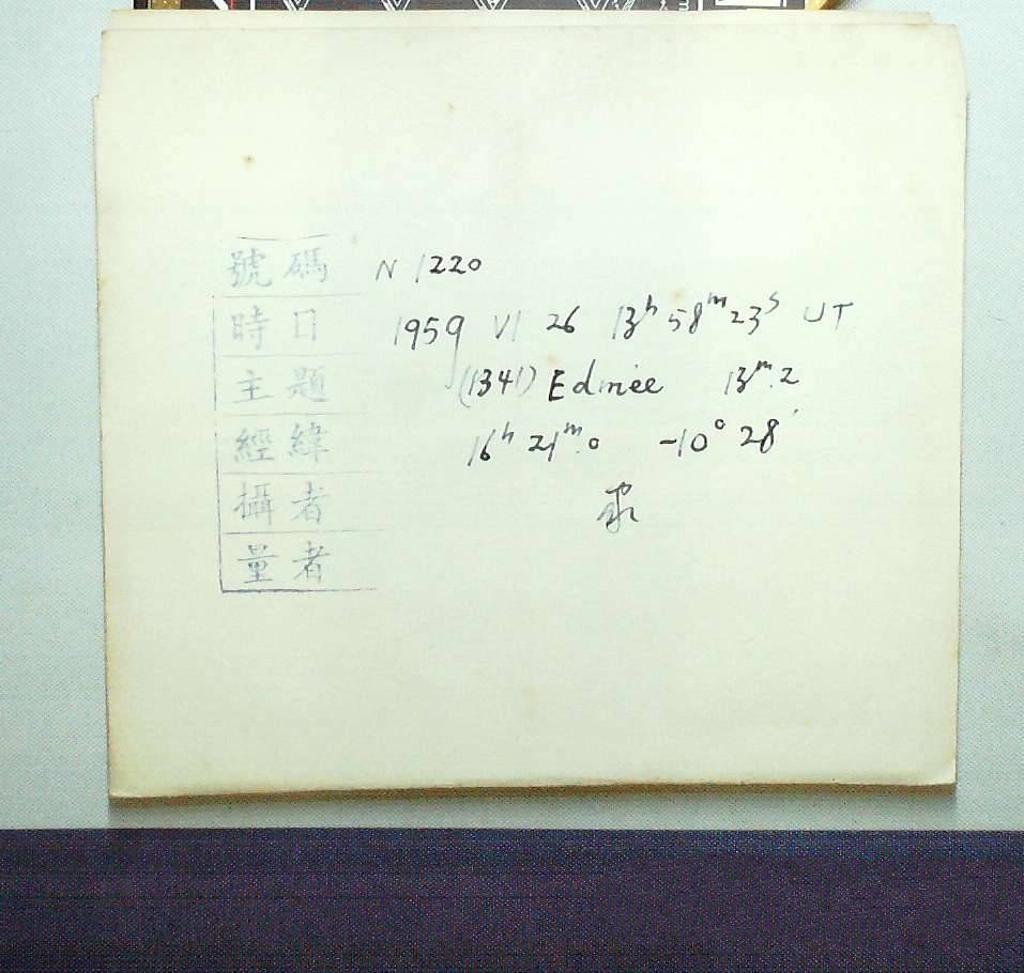 號碼 N 1220
時日 1959 VI 26 13ʰ 58ᵐ 23ˢ UT
主題 (1341) Edmée 13ᵐ.2
經緯 16ʰ 21ᵐ.0 -10° 28'
攝者
量者